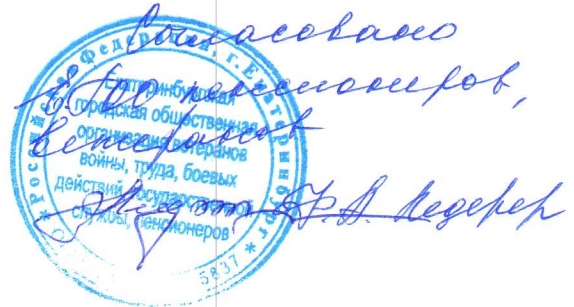 Согласовано
ЕГОО пенсионеров,
ветеранов
Ф.А. Ледерер
* Российская Федерация, г. Екатеринбург *
Екатеринбургская
городская общественная
организация ветеранов
войны, труда, боевых
действий, государственной
службы, пенсионеров
5837